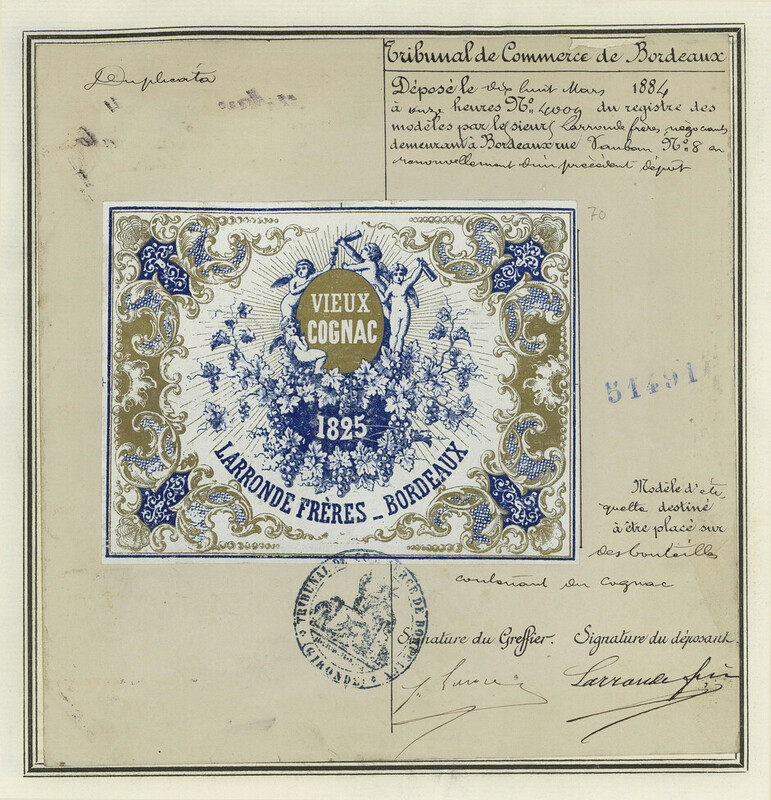 Duplicata
Tribunal de Commerce de Bordeaux
Déposé le dix huit Mars 1884
à onze heures No. 4009 du registre des
modèles par le(sieur( Larronde frères, négociants
demeurant à Bordeaux rue Vauban No. 8 en
renouvellement d'un précédent dépôt
70
VIEUX
COGNAC
1825
LARRONDE FRÈRES _ BORDEAUX
51491
Modèle d'éti
quette destiné
à être placé sur
des bouteilles
contenant du cognac
TRIBUNAL DE COMMERCE DE BORDEAUX
(GIRONDE)
Signature du Greffier. Signature du déposant.
Larronde frères